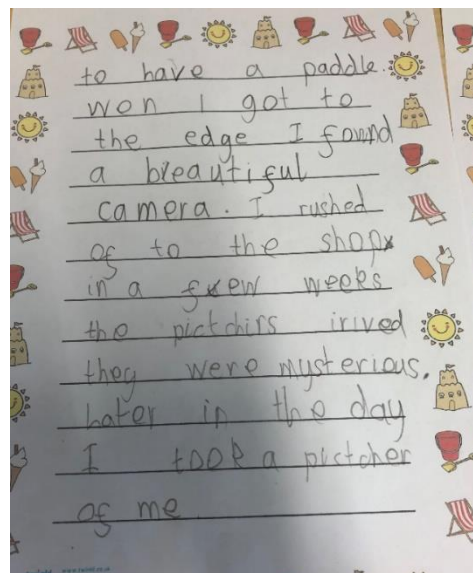 to have a paddle.
won I got to
the edge I found
a breautiful
camera. I rushed
of to the shop
in a few weeks
the pictchirs irived
they were mysterious.
Later in the day
I took a pictcher
of me